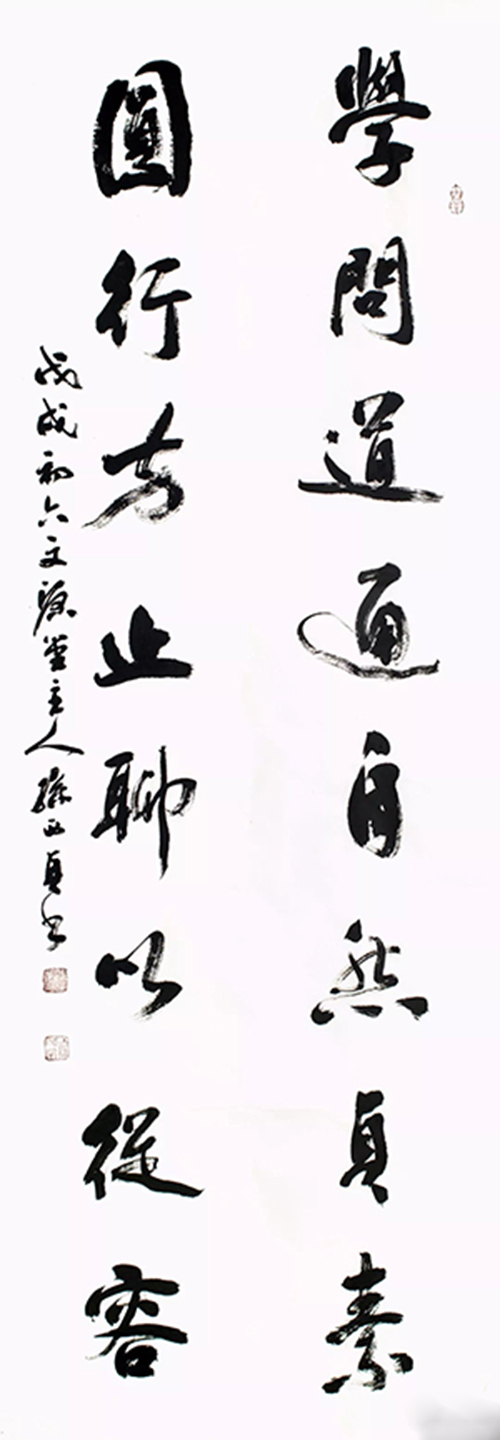 學問道通自然貞素
圓行方止聊以從容
戊戌初六文源堂主人貞书